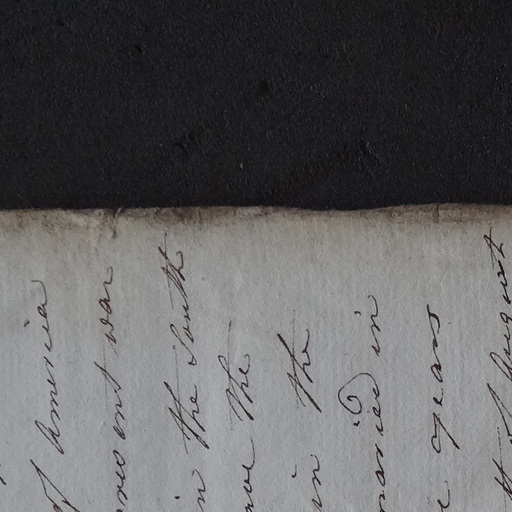 of America
present war
in the South
the
in the
married in
years
of August